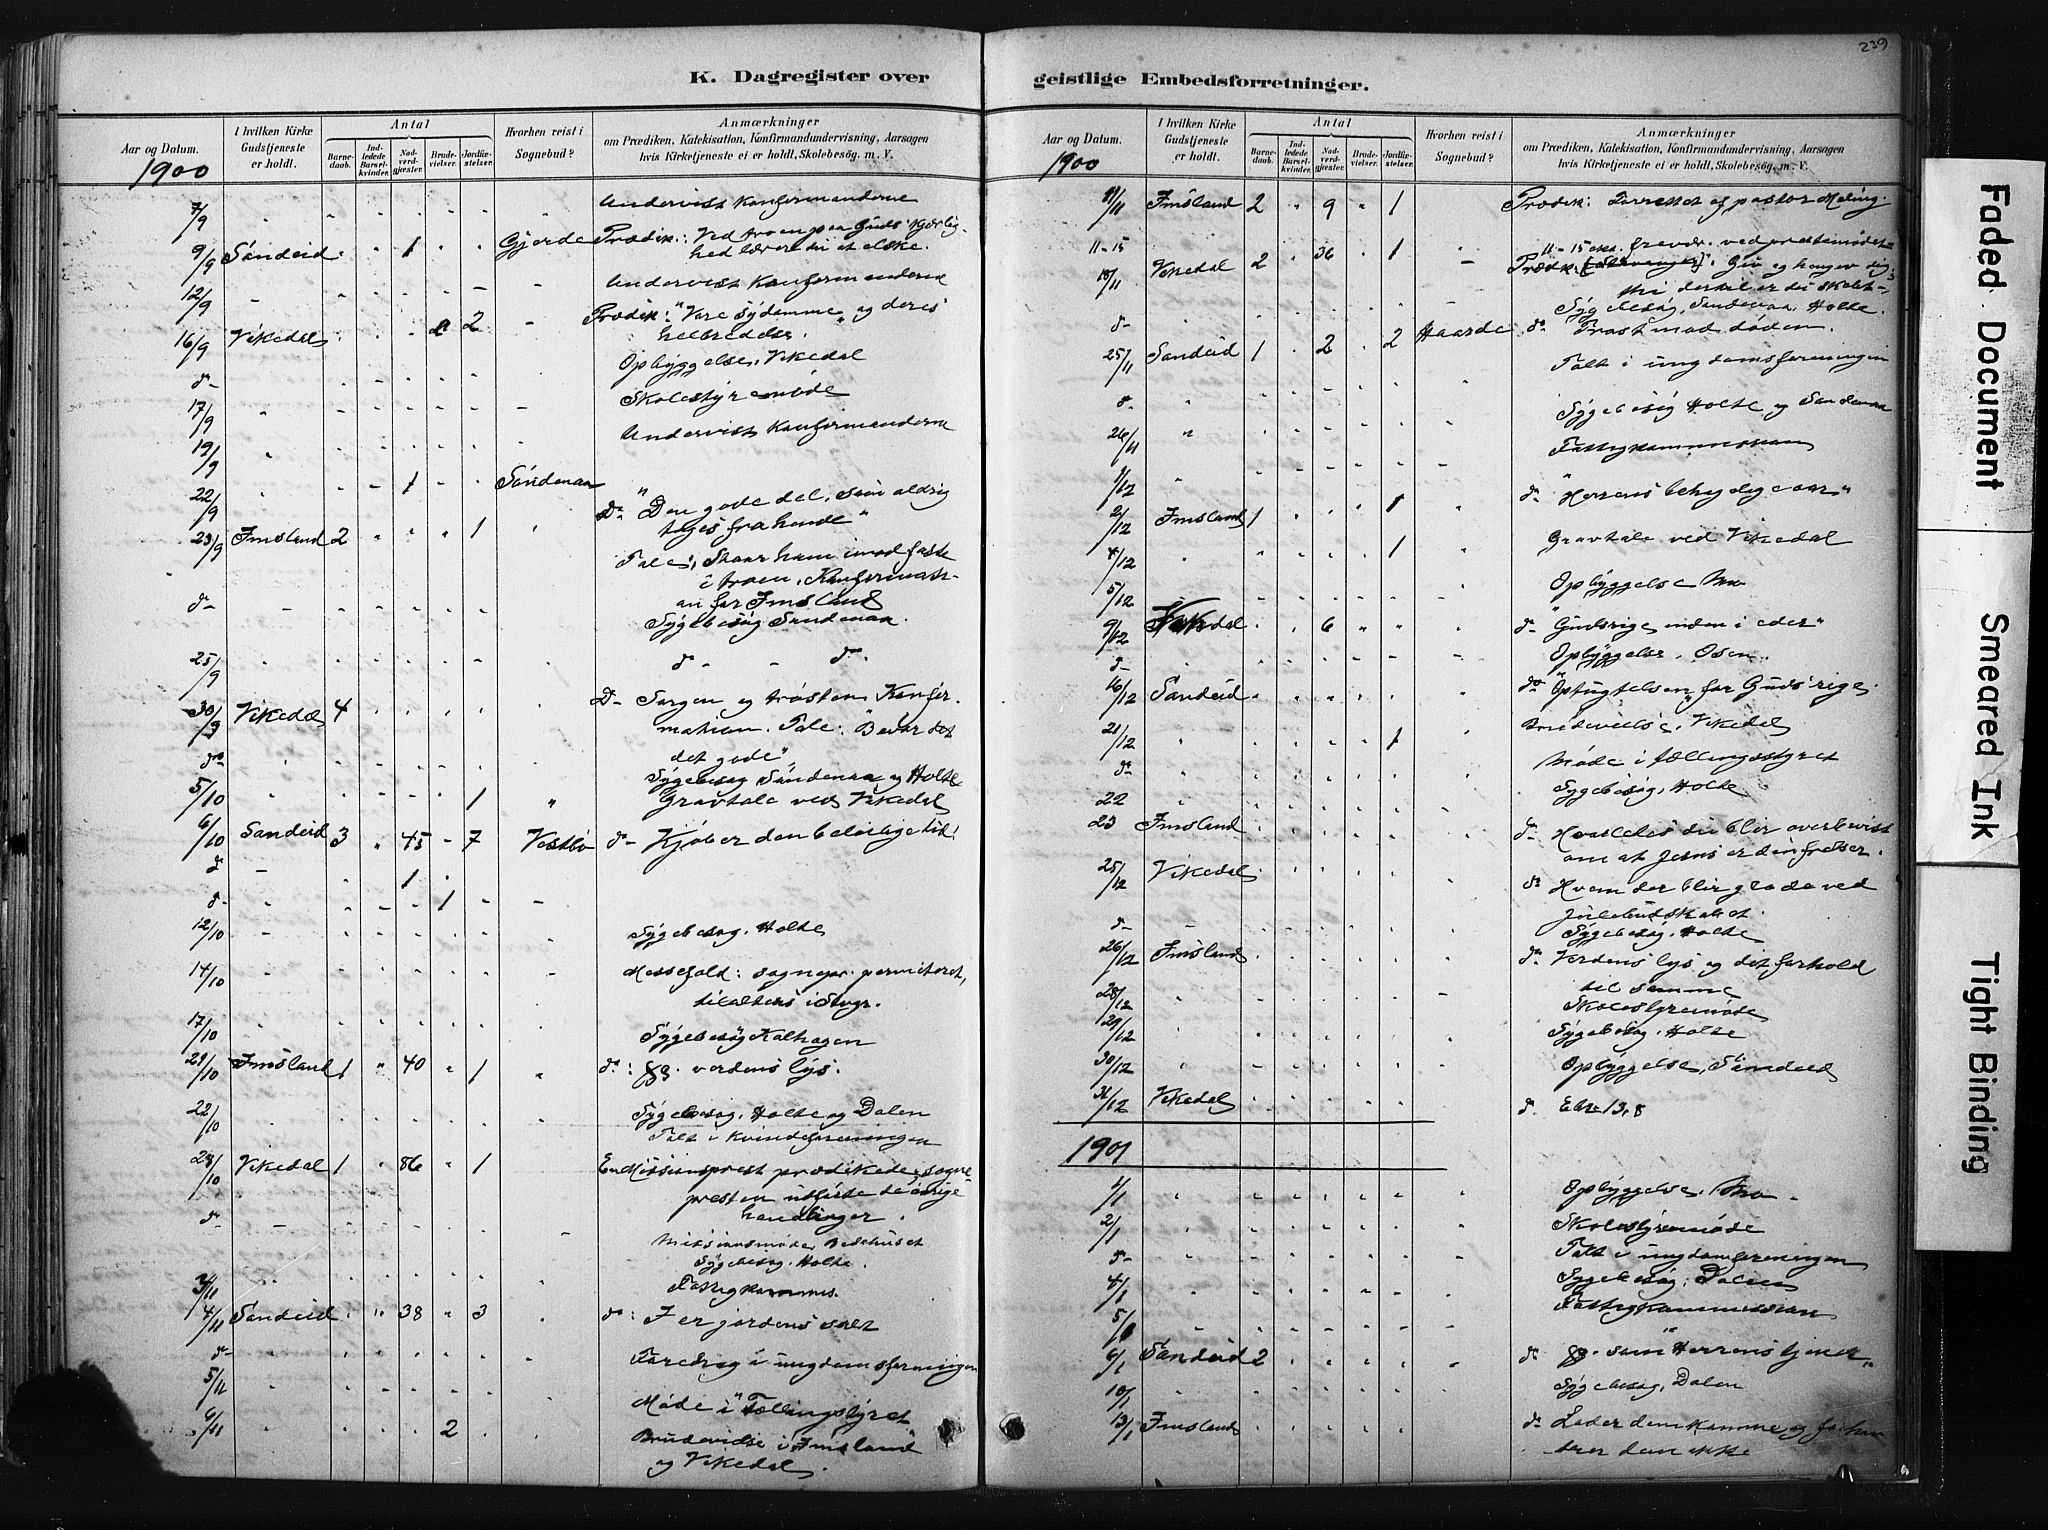 239
K. Dagregister over
geistlige Embedsforretninger.
Aar og Datum.
1900
I hvilken Kirke Gudstjeneste er holdt.
Antal
Barnedaab.
Indledede Barselkvinder.
Nadverdgjester.
Brudevielser.
Jordfæstelser.
Hvorhen reist i Sognebud?
Anmærkninger
om Prædiken, Katekisation, Konfirmandundervisning, Aarsagen
hvis Kirketjeneste ei er holdt, Skolebesøg. m. V.
7/9 Undervist Konfirmanderne
9/9 Sandeid 1 Gjerde Prædik: Ved troen paa Guds Kjærlig-
hed lærer vi at elske.
12/9 Undervist Konfirmanderne
16/9 Vikedal 2 Prædik: "Vare sydomme og deres
helbredelse."
d- Opbyggelse, Vikedal
17/9 Skolestyremøde
19/9 Undervist Konfirmanderne
22/9 1 Sandenaa
23/9 Imsland 2 1 d- "Den gode del, som aldrig
tages fra hende"
Tale: Staar ham imod faste
i troen, Konfirmati-
on for Imsland
d- Sygebesøg Sandenaa.
25/9 d- - d-
30/9 Vikedal 4 d- Sorgen og trøsten Konfir-
mation. Tale: "Bevar det
det gode"
d- Sygebesøg Sandenaa og Holte
5/10 1 Gravtale ved Vikedal
6/10 Sandeid 3 45 7 Vestbø d- Kjøber den beleilige tid!
d- 1
d- 1
12/10 Sygebesøg. Holte
14/10 Messefald: sognepr. permiteret,
17/10 Sygebesøg Kalhagen
21/10 Imsland 1 40 1 d-: verdens lys.
22/10 Sygebesøg. Holte og Dalen
Talt i Kvindeforeningen
28/10 Vikedal 1 86 1 En Missionsprest prædikede, sogne-
presten utførte de øvrige
handlinger.
d- Missionsmøde Bedehuset
Sygebesøg. Holte.
3/11 Fattigkommis.
4/11 Sandeid 38 3 d-: I er jordens salt
d- Foredrag i ungdomsforningen
5/11 Møde i "Tællingstyret
6/11 2 Brudevielse i Imsland
og Vikedal.
Aar og Datum.
1900
I hvilken Kirke Gudstjeneste er holdt.
Antal
Barnedaab.
Indledede Barselkvinder.
Nadverdgjester.
Brudevielser.
Jordfæstelser.
Hvorhen reist i Sognebud?
Anmærkninger
om Prædiken, Katekisation, Konfirmandundervisning, Aarsagen
hvis Kirketjeneste ei er holdt, Skolebesøg, m. V.
11/11 Imsland 2 9 1 Prædik: Forrettet af pastor Meling.
11-15
18/11 Vikedal 2 36 1 Prædik:
Sygebesøg, Sandenaa, Holte.
d- Haarde d- Trøst mod døden.
25/11 Sandeid 1 2 2 Talt i ungdomsforeningen
d-
26/11 Sygebesøg Holte og Sandenaa
1/12 Fattigkommission
2/12 Imsland 1 1 d- "Herrens behagelige aar"
4/12 1 Gravtale ved Vikedal
5/12 Opbyggelse Mo
9/12 Vikedal 6 d- "Gudsrige inden i eder"
d- Opbyggelse. Osen.
16/12 Sandeid d- "Optugtelsen" for Guds rige.
21/12 1 Brudevielse, Vikedal
d- Møde i tællingsstyret
22 Sygebesøg, Holte
23 Imsland d- Hvorledes du blir overbevist
om at Jesus er din frelser.
25/12 Vikedal d- Hvem der blir glade ved
Julebudskabet
d- Sygebesøg. Holte
26/12 Imsland d- Verdens lys og det forhold
til samme
28/12 Skolestyremøde
29/12 Sygebesøg. Holte
30/12 Opbyggelse, Sandeid
31/12 Vikedal d- Ebr 13,8
1901
1/1 Opbyggelse, Mo
2/1 Skolestyremøde
d- Talt i ungdomforeningen
4/1 Sygebesøg: Dalen
5/1 Fattigkommission
6/1 Sandeid 2 d- som Herrens tjener"
10/1 Sygebesøg, Dalen
13/1 Imsland d- Lader dem komme og forhin-
drer dem ikke
Faded Document
Smeared Ink
Tight Binding